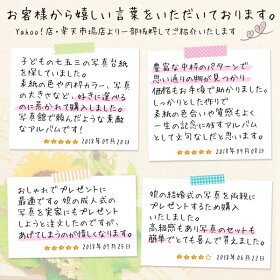 お客様から嬉しい言葉をいただいております。
Yahoo!店・楽天市場店より一部抜粋してご紹介いたします
子どもの七五三の写真台紙
を探していました。
素紙の色や内枠カラー、写真
の大きさなど、好きに選べる
のに惹かれて購入しました。
写真館で頼んだような素敵
なアルバムです！
★★★★★ 2018年09月20日
豊富な中枠のパターンで
思い通りの物が見つかり
価格もお手頃で助かりました。
しっかりとした作りで
素紙の色合いや質感もよく
一生の記念に残すアルバム
として文句なしだと思います。
★★★★★ 2018年09月08日
おしゃれでプレゼントに
最適です。娘の成人式の
写真を実家にもプレゼント
しようと注文したのですが、
あげてしまうのが惜しくなります。
★★★★★ 2018年09月25日
娘の結婚式の写真を両親に
プレゼントするため購入
いたしました。
高級感もあり写真のセットも
簡単でとても喜んで貰えました。
★★★★★ 2018年06月22日